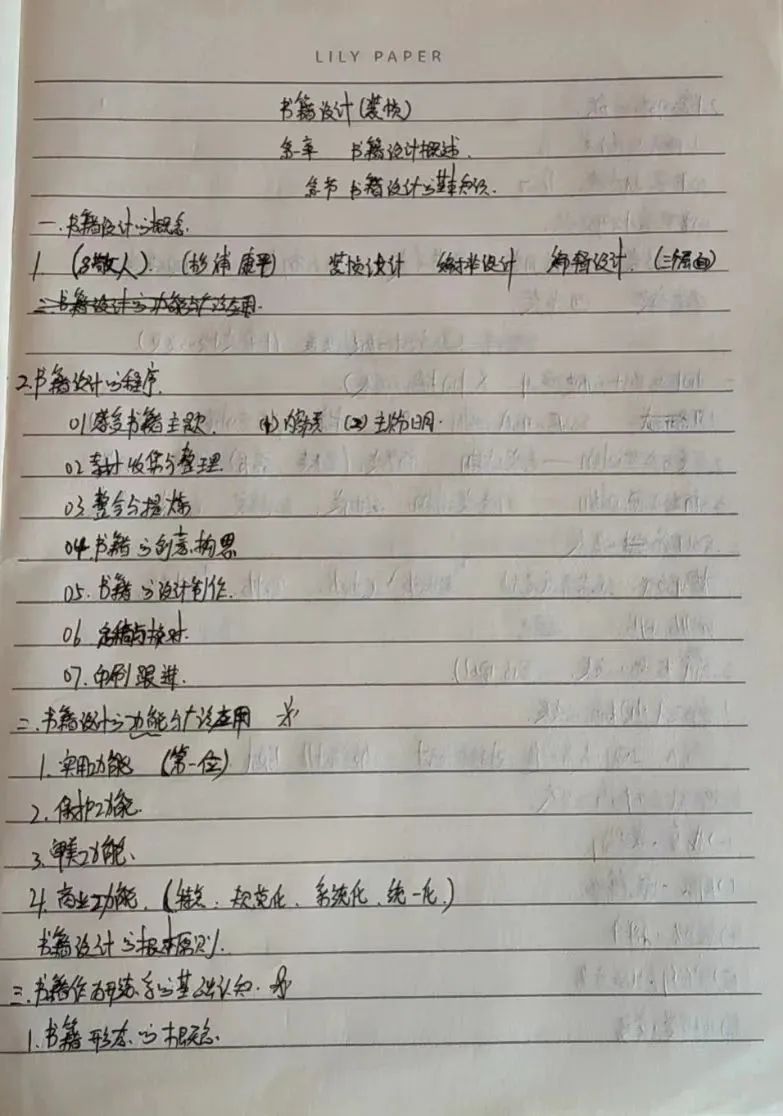 LILY PAPER
书籍设计(装帧)
第一章 书籍设计概述.
第一节 书籍设计的基本知识.
一.书籍设计的概念.
1 (吕敬人). (杉浦康平) 装帧设计 编排设计 编辑设计. (三层面)
二.书籍设计的功能与广泛应用.
2.书籍设计的程序.
01感受书籍主题. (1)内容 (2)主
02素材收集与整理.
03整合与提炼
04.书籍的创意构思
05.书籍的设计制作.
06 定稿与校对.
07.印刷跟进.
二.书籍设计的功能与广泛应用
1.实用功能 (第一位)
2.保护功能.
3.审美功能.
4.商业功能. (特点:规范化、系统化、统一化.)
书籍设计的根本原则.
三.书籍作为形态系的基础认知.
1.书籍形态的概念.